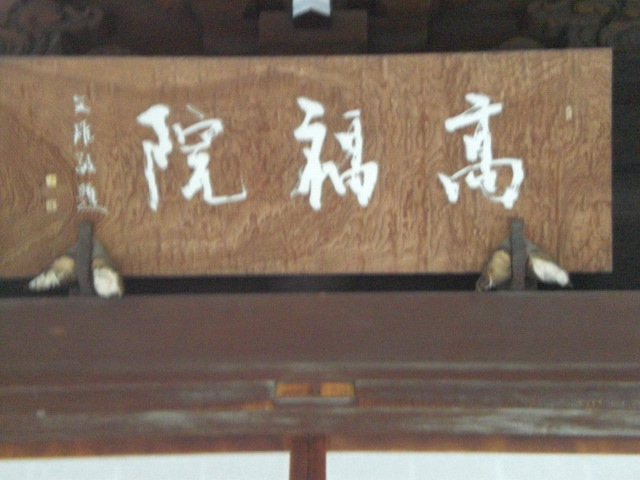 高福院